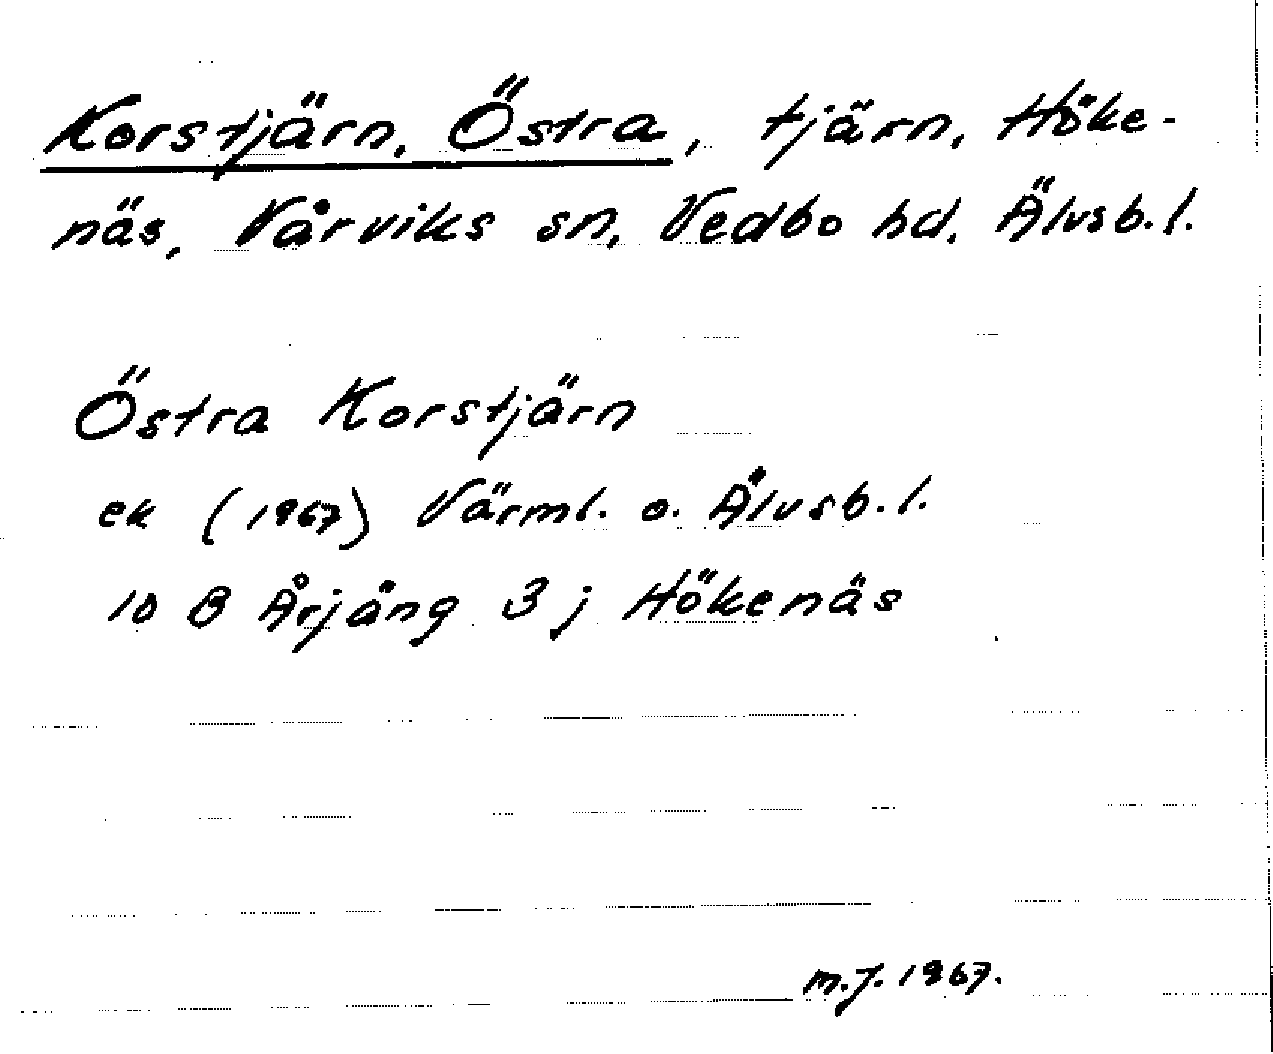 Korstjärn, Östra, tjärn, Höke-
näs, Vårviks sn, Vedbo hd, Älvsb. l.
Östra Korstjärn
ek (1967) Värml. o. Älvsb. l.
10 B Årjäng 3 j Hökenäs
m.J. 1967.